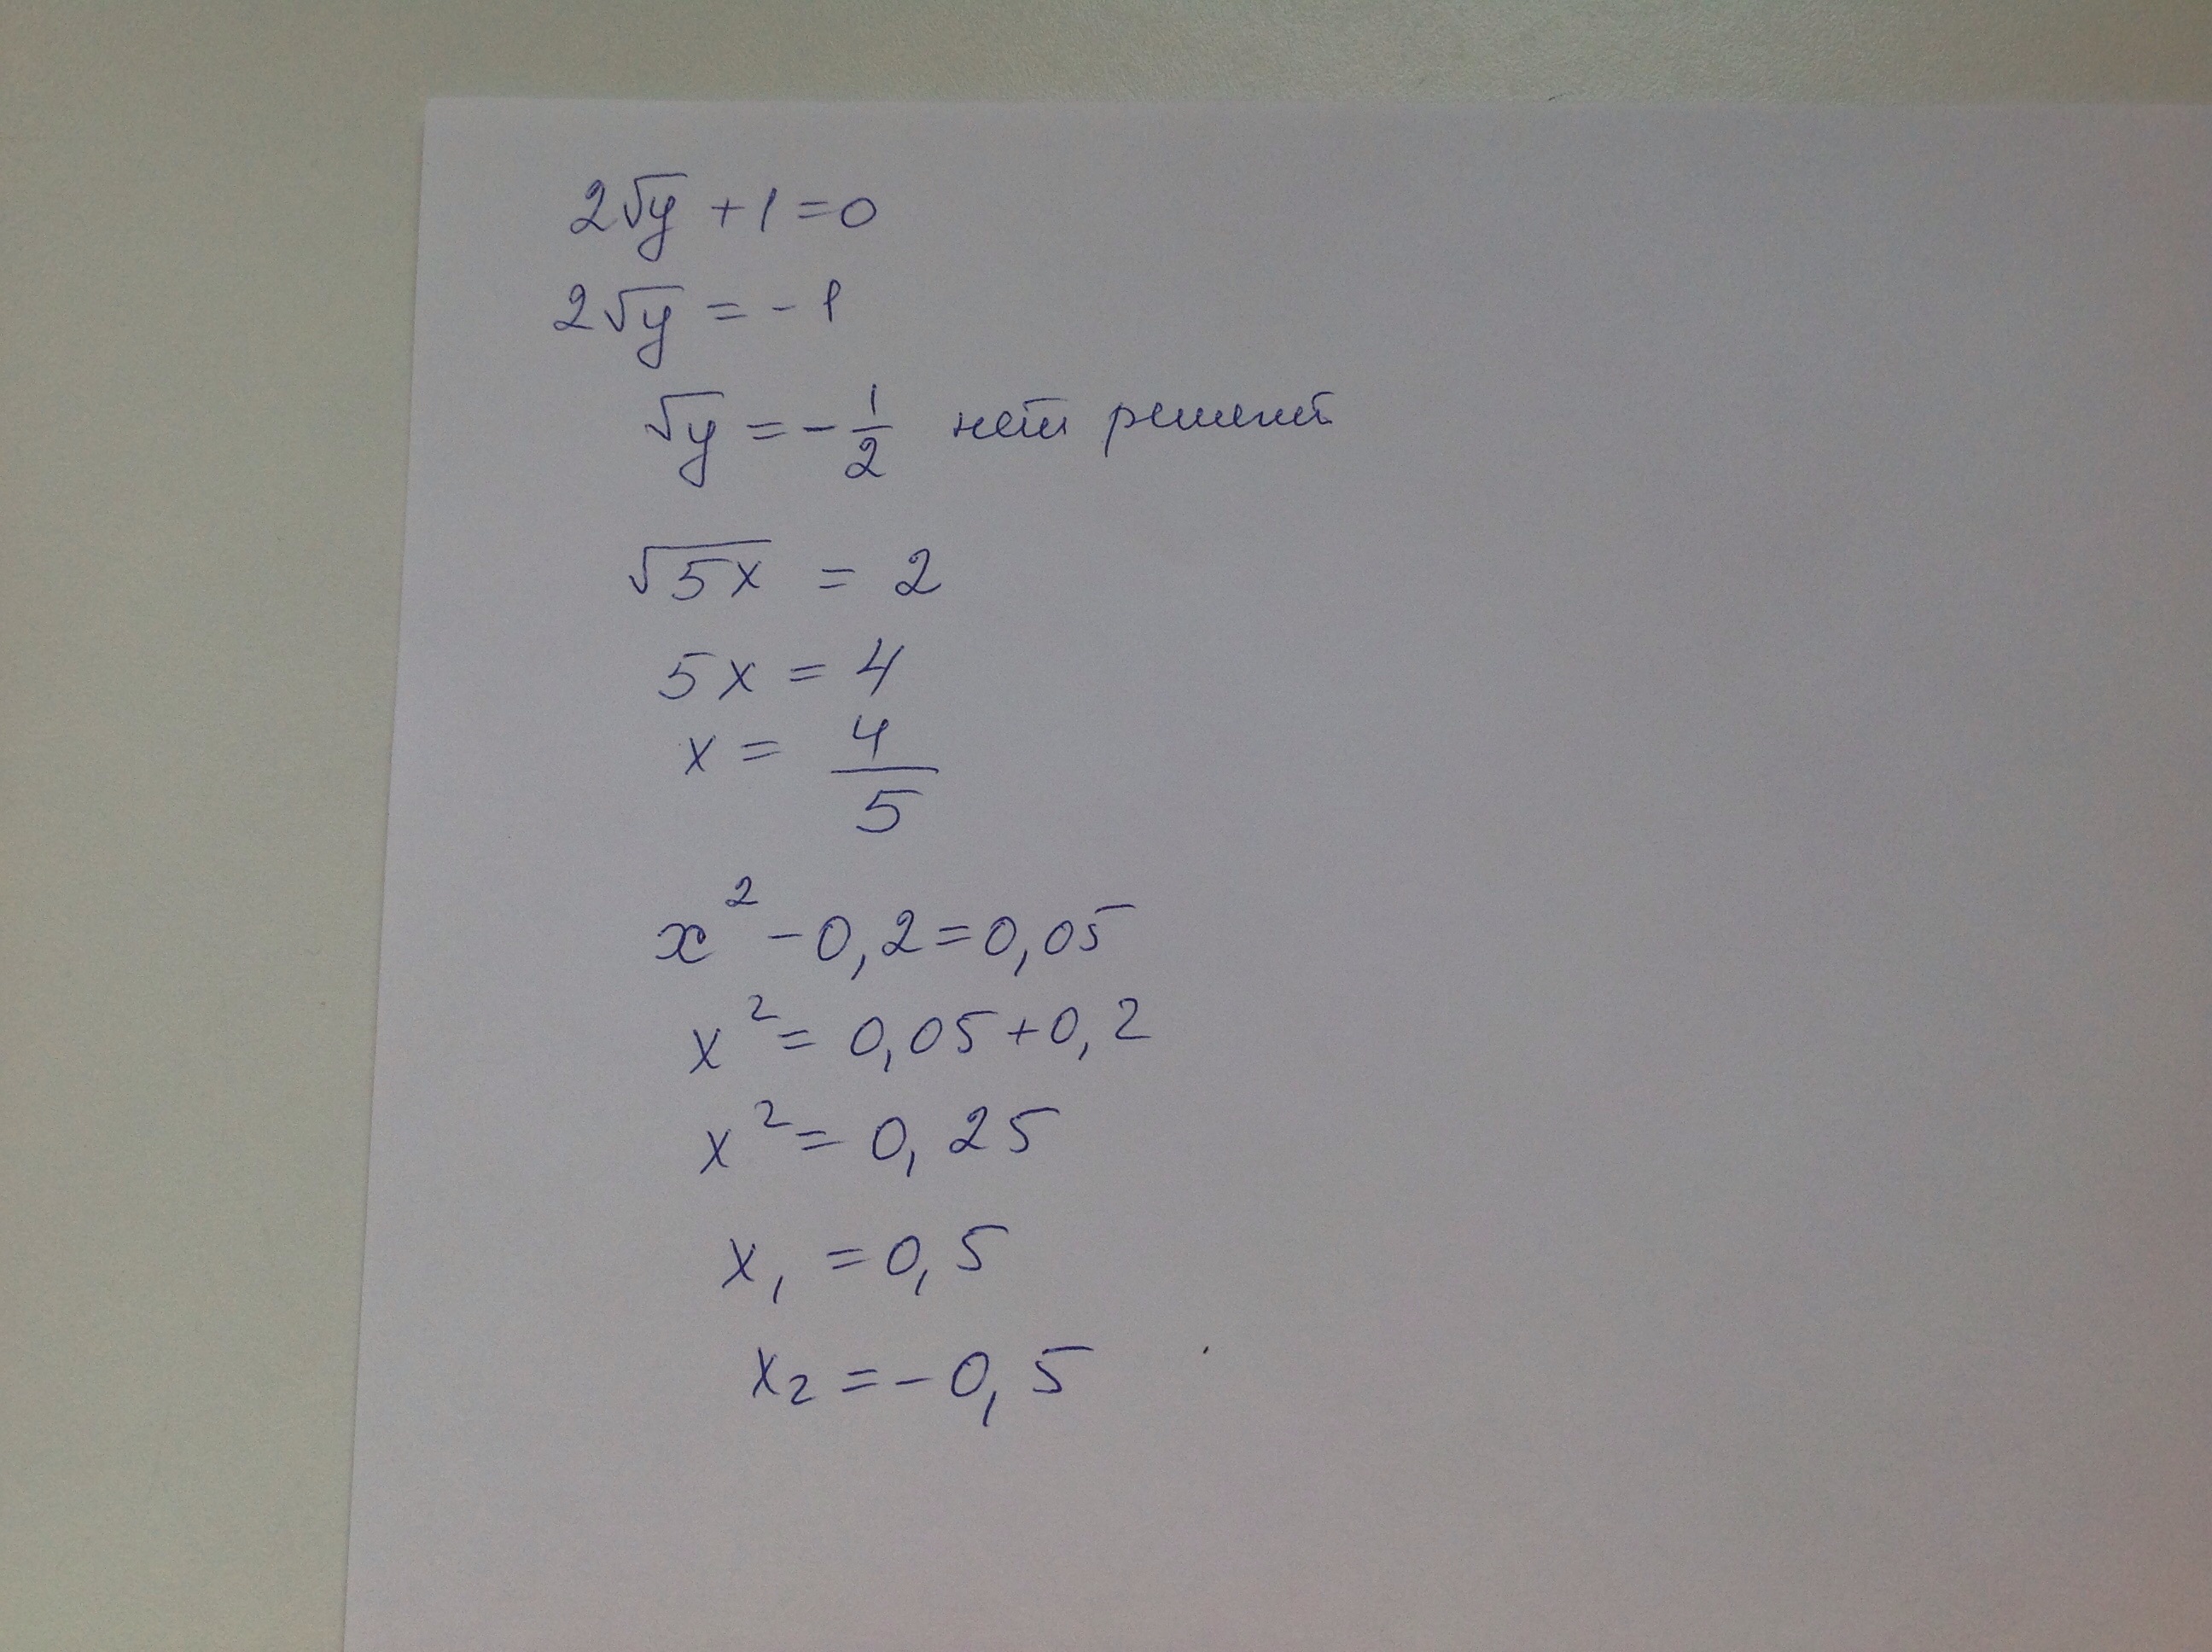 2√y + 1 = 0
2√y = -1
√y = -1/2 нет решений
√5x = 2
5x = 4
x = 4/5
x² - 0,2 = 0,05
x² = 0,05 + 0,2
x² = 0,25
x₁ = 0,5
x₂ = -0,5